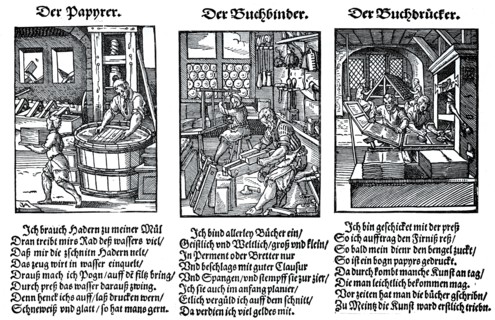 Der Papyrer.
Ich brauch Hadern zu meiner Mül
Dran treibt mirs Rad deß wassers viel/
Daß mir die zschnitn Hadern nelt/
Das zeug wirt in wasser einquelt/
Drauß mach ich Pogn/auff dē filtz bring/
Durch preß das wasser darauß zwing.
Denn henck ichs auff/laß drucken wern/
Schneweiß und glatt/so hat mans gern.
Der Buchbinder.
Ich bind allerley Bücher ein/
Geistlich und Weltlich/groß und klein/
In Perment oder Bretter nur
Und beschlags mit guter Clausur
Und Spangen/und stempff sie zur zier/
Ich sie auch im anfang planier/
Etlich vergüld ich auff dem schnitt/
Da verdien ich viel geldes mit.
Der Buchdrücker.
Ich bin geschicket mit der preß
So ich aufftrag den Firniß reß/
So bald mein dienr den bengel zuckt/
So ist ein bogn papyrs gedruckt.
Da durch kombt manche Kunst an tag/
Die man leichtlich bekommen mag.
Vor zeiten hat man die bücher gschribn/
Zu Meintz die Kunst ward erstlich triebn.